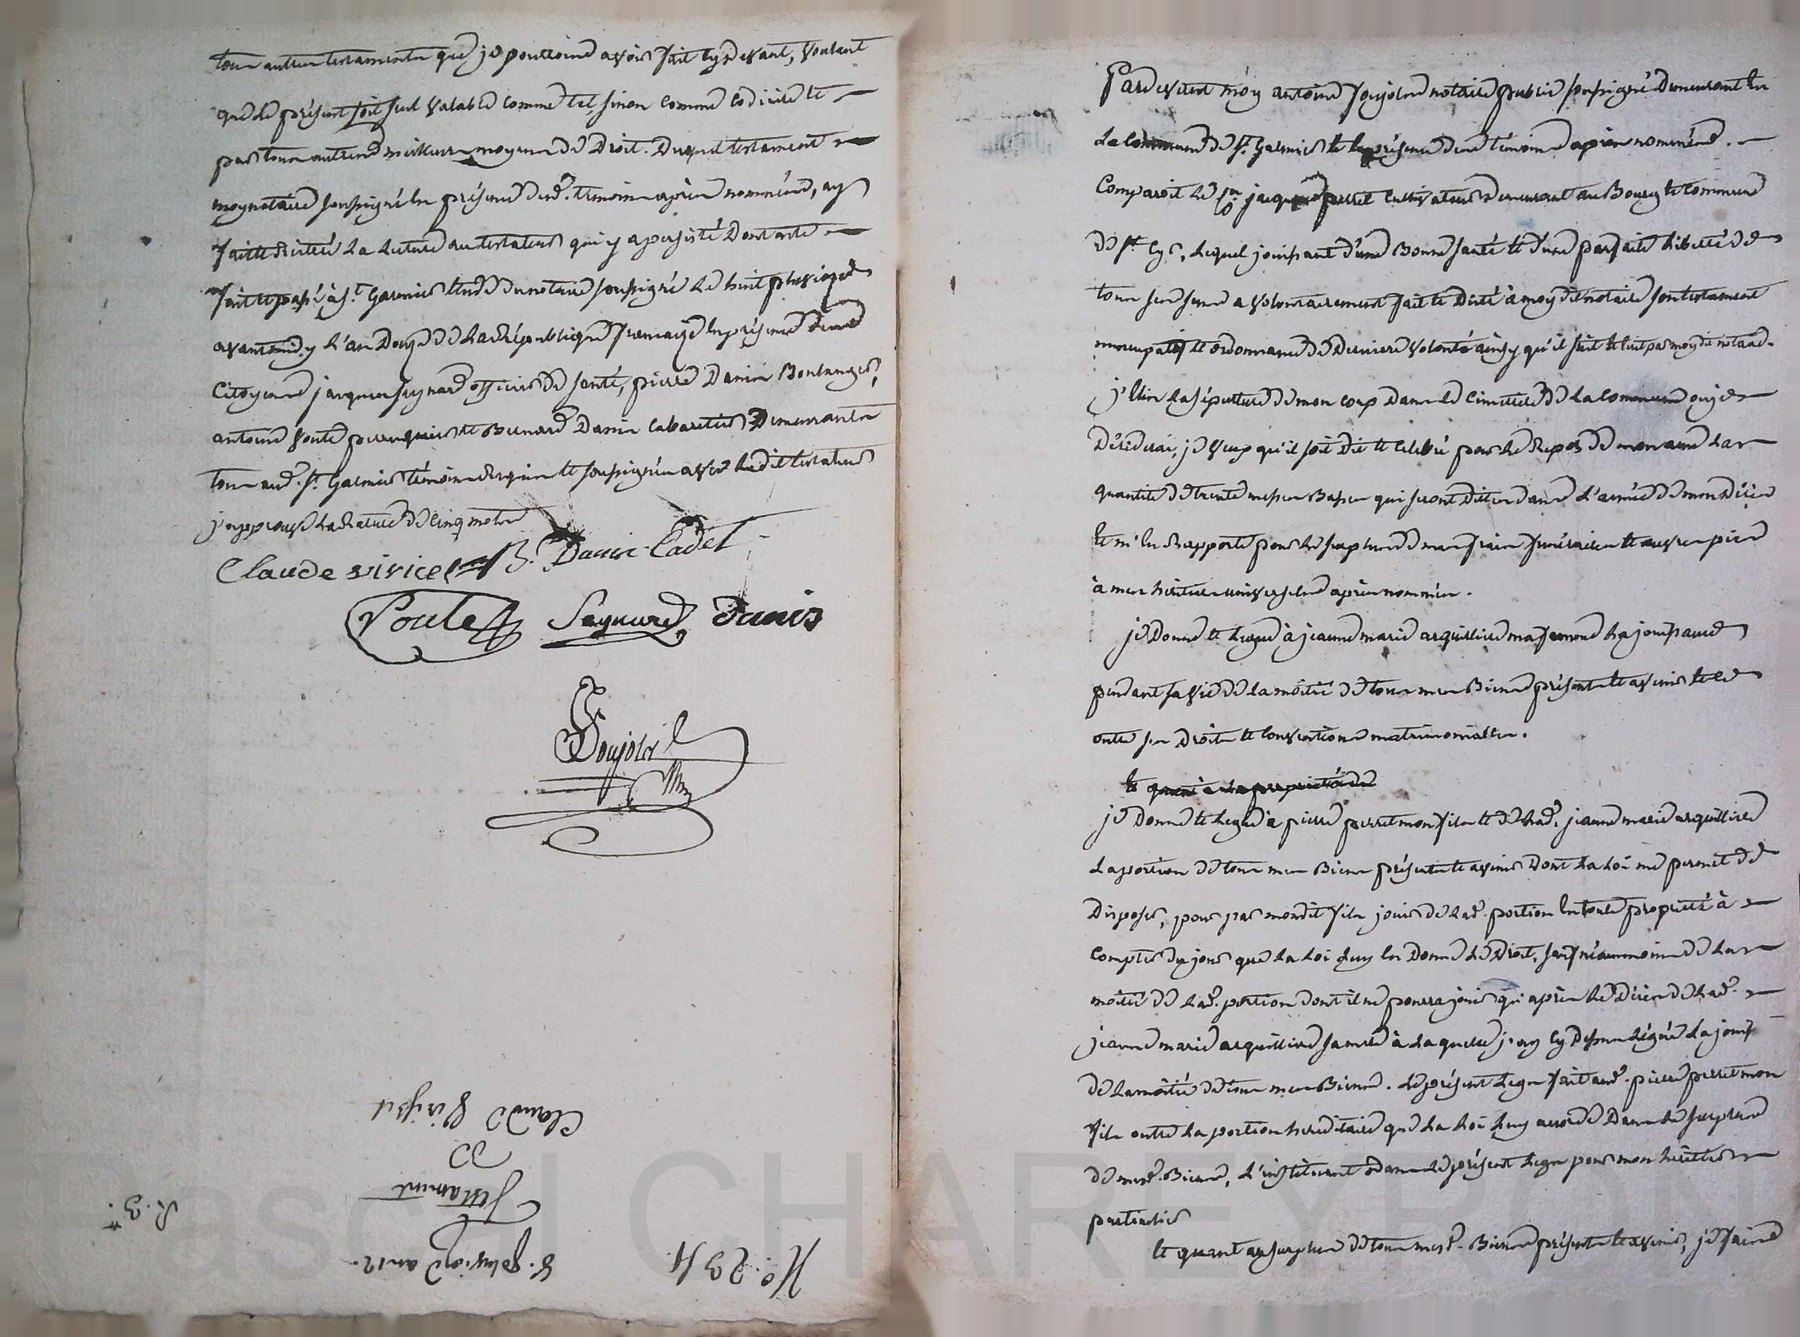 tous autres testaments que je pourrois avoir fait cy devant, voulant
que le présent soit seul valable comme tel sinon comme codicile et
par tous autres meilleurs moyens de Droit. Duquel testament
moy notaire soussigné en présence desd. temoins après nommés, ay
faitte réitéré la lecture au testateur qui y a persisté Dont acte
fait et passé à St. Galmier étude du notaire soussigné le huit pluviose
avant midy l'an Douze de la République française en présence des
Citoyens jacques seignard officier de santé, pierre Danis Boulanger,
antoine Poute perruquier et Bernard Danis cabaretier Demeurants
tous aud. St. Galmier témoins requis et soussignés avec ledit testateur
j'approuve la rature de cinq mots
Claude viricel B. Danis Cadet
Poute Seignard Danis
Poujols
Claude Virissel
De
Testament
8. pluviose an 12.
No. 234
R. 3.
Pardevant moy antoine Poujols notaire public soussigné Demeurant en
la Commune de St. Galmier et en présence des témoins après nommés.
Comparoit le Sr. jacques perret Cultivateur Demeurant au Bourg et Commune
de St. Cyr, lequel jouissant d'une Bonne santé et d'une parfaite liberté de
tous ses sens a volontairement fait et Dicté à moy dit notaire son testament
nuncupatif et ordonnance de Derniere volonté ainsy qu'il suit écrit par moy dit notaire.
j'Elis la sépulture de mon corp Dans le Cimetierre de la Commune ou je
Décéderai, je veux qu'il soit Dit et célébré pour le Repos de mon ame la
quantité de trente messes Basses qui seront dittes dans l'année de mon Décès
et m'en rapporte pour le surplus de mes frais funéraires et œuvres pies
à mes héritiers universels après nommés.
je Donne et legue à jeanne marie arquilliere ma femme la jouissance
pendant sa vie de la moitié de tous mes Biens présents et avenir et ce
outre ses Droits et Conventions matrimoniales.
et quant à la propriété de
je Donne et legue à pierre perret mon fils et de lad. jeanne marie arquilliere
la portion de tous mes Biens présents et avenir Dont la Loi me permet de
Disposer, pour par mondit fils jouir de lad. portion en toute propriété à
Compter du jour que la Loi luy en Donne le Droit, sauf néanmoins de la
moitié de lad. portion dont il ne pourra jouir qu'après le Décès de lad.
jeanne marie arquilliere sa mere à laquelle j'ay cy Dessus légué la jouiss
de la moitié de tous mes Biens. le présent legs fait aud. pierre perret mon
fils outre la portion hereditaire que la Loi luy accorde Dans le surplus
de mesd. Biens, l'instituant dans le présent legs pour mon héritier
particulier
et quant au surplus de tous mesd. Biens présents et avenir, je fais et
Pascal CHAREYRON